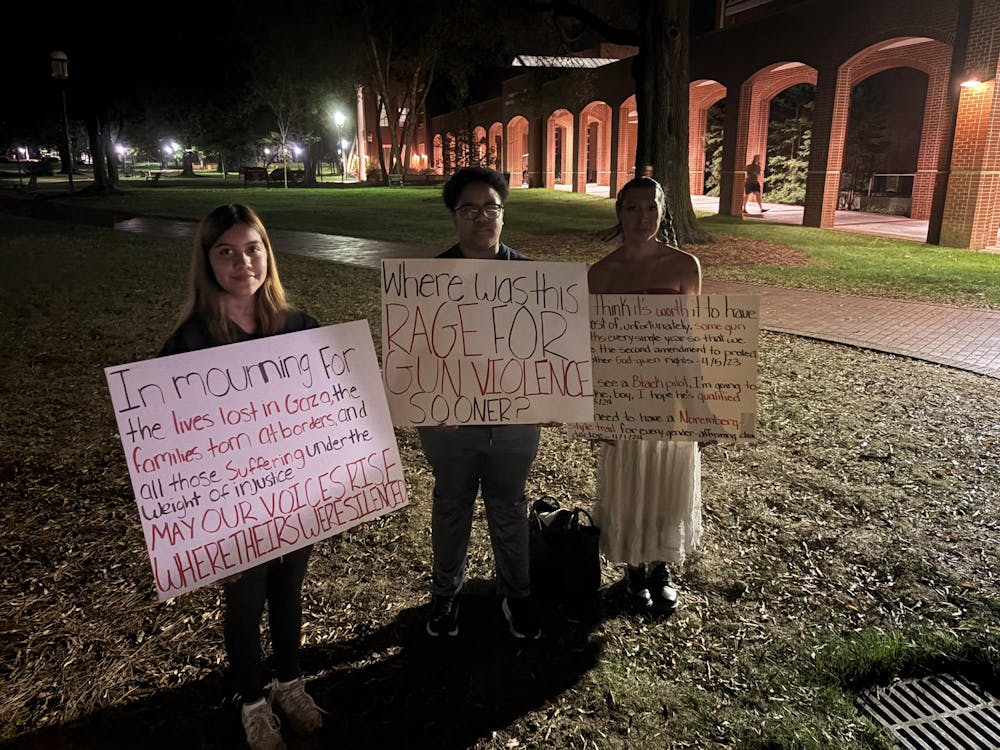 In mourning For
the lives lost in Gaza, the
families torn at borders, and
all those suffering under the
weight of injustice
MAY OUR VOICES RISE
WHERE THEIRS WERE SILENCED
Where was this
RAGE FOR
GUN VIOLENCE
SOONER?
think it's worth it to have
of, unfortunately, some gun
every single year so that we
the second amendment to protect
other God-given rights - 4/5/23
see a Black pilot, I'm going to
be, boy, I hope he's qualified
/24
need to have a Nuremberg
style trail for every gender-affirming
4/1/24